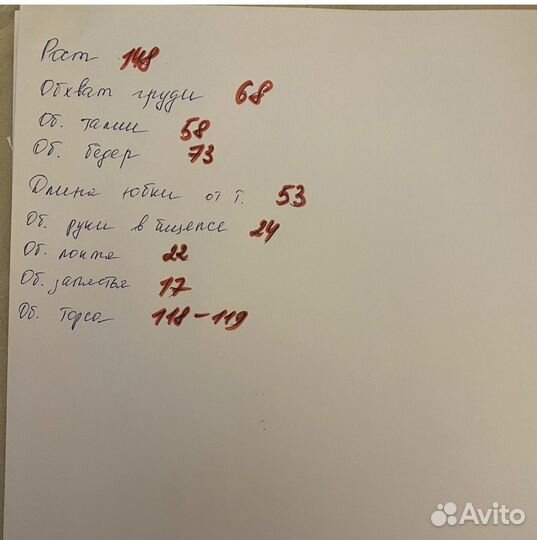 Рост 148
Обхват груди 68
Об. талии 58
Об. бедер 73
Длина юбки от т. 53
Об. руки в бицепсе 24
Об. локтя 22
Об. запястья 17
Об. Торса 118-119
Avito